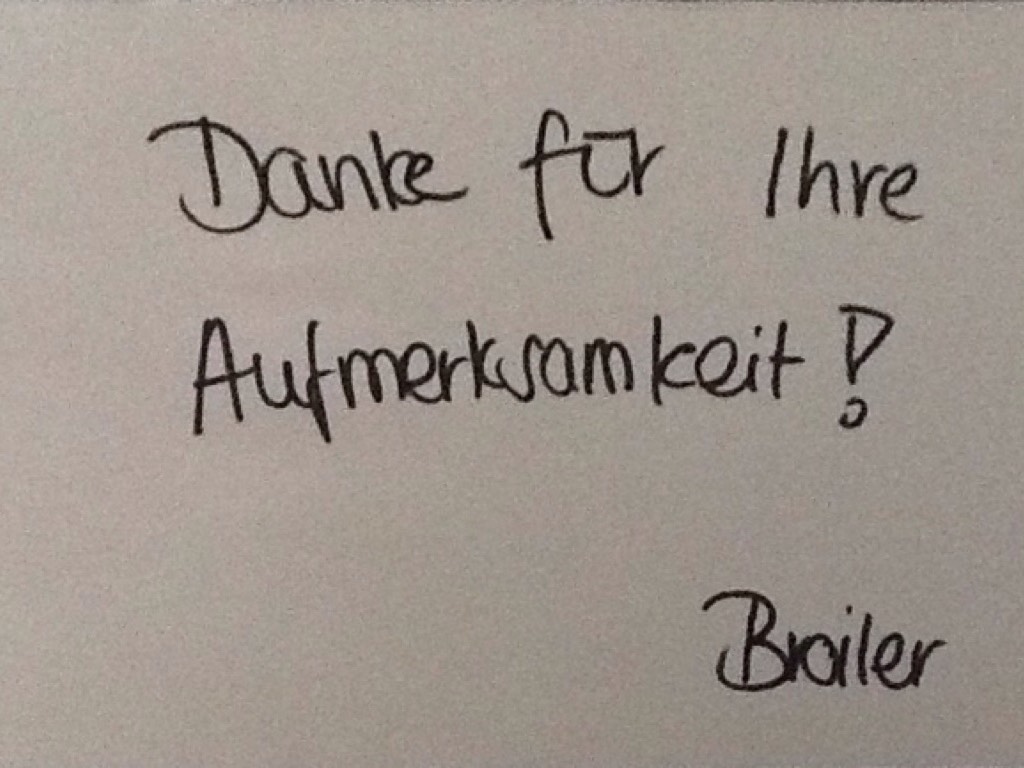 Danke für Ihre
Aufmerksamkeit!
Broiler